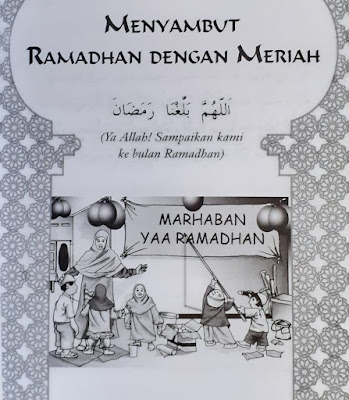 MENYAMBUT
RAMADHAN DENGAN MERIAH
اَللّٰهُمَّ بَلِّغْنَا رَمَضَانَ
(Ya Allah! Sampaikan kami
ke bulan Ramadhan)
MARHABAN
YAA RAMADHAN